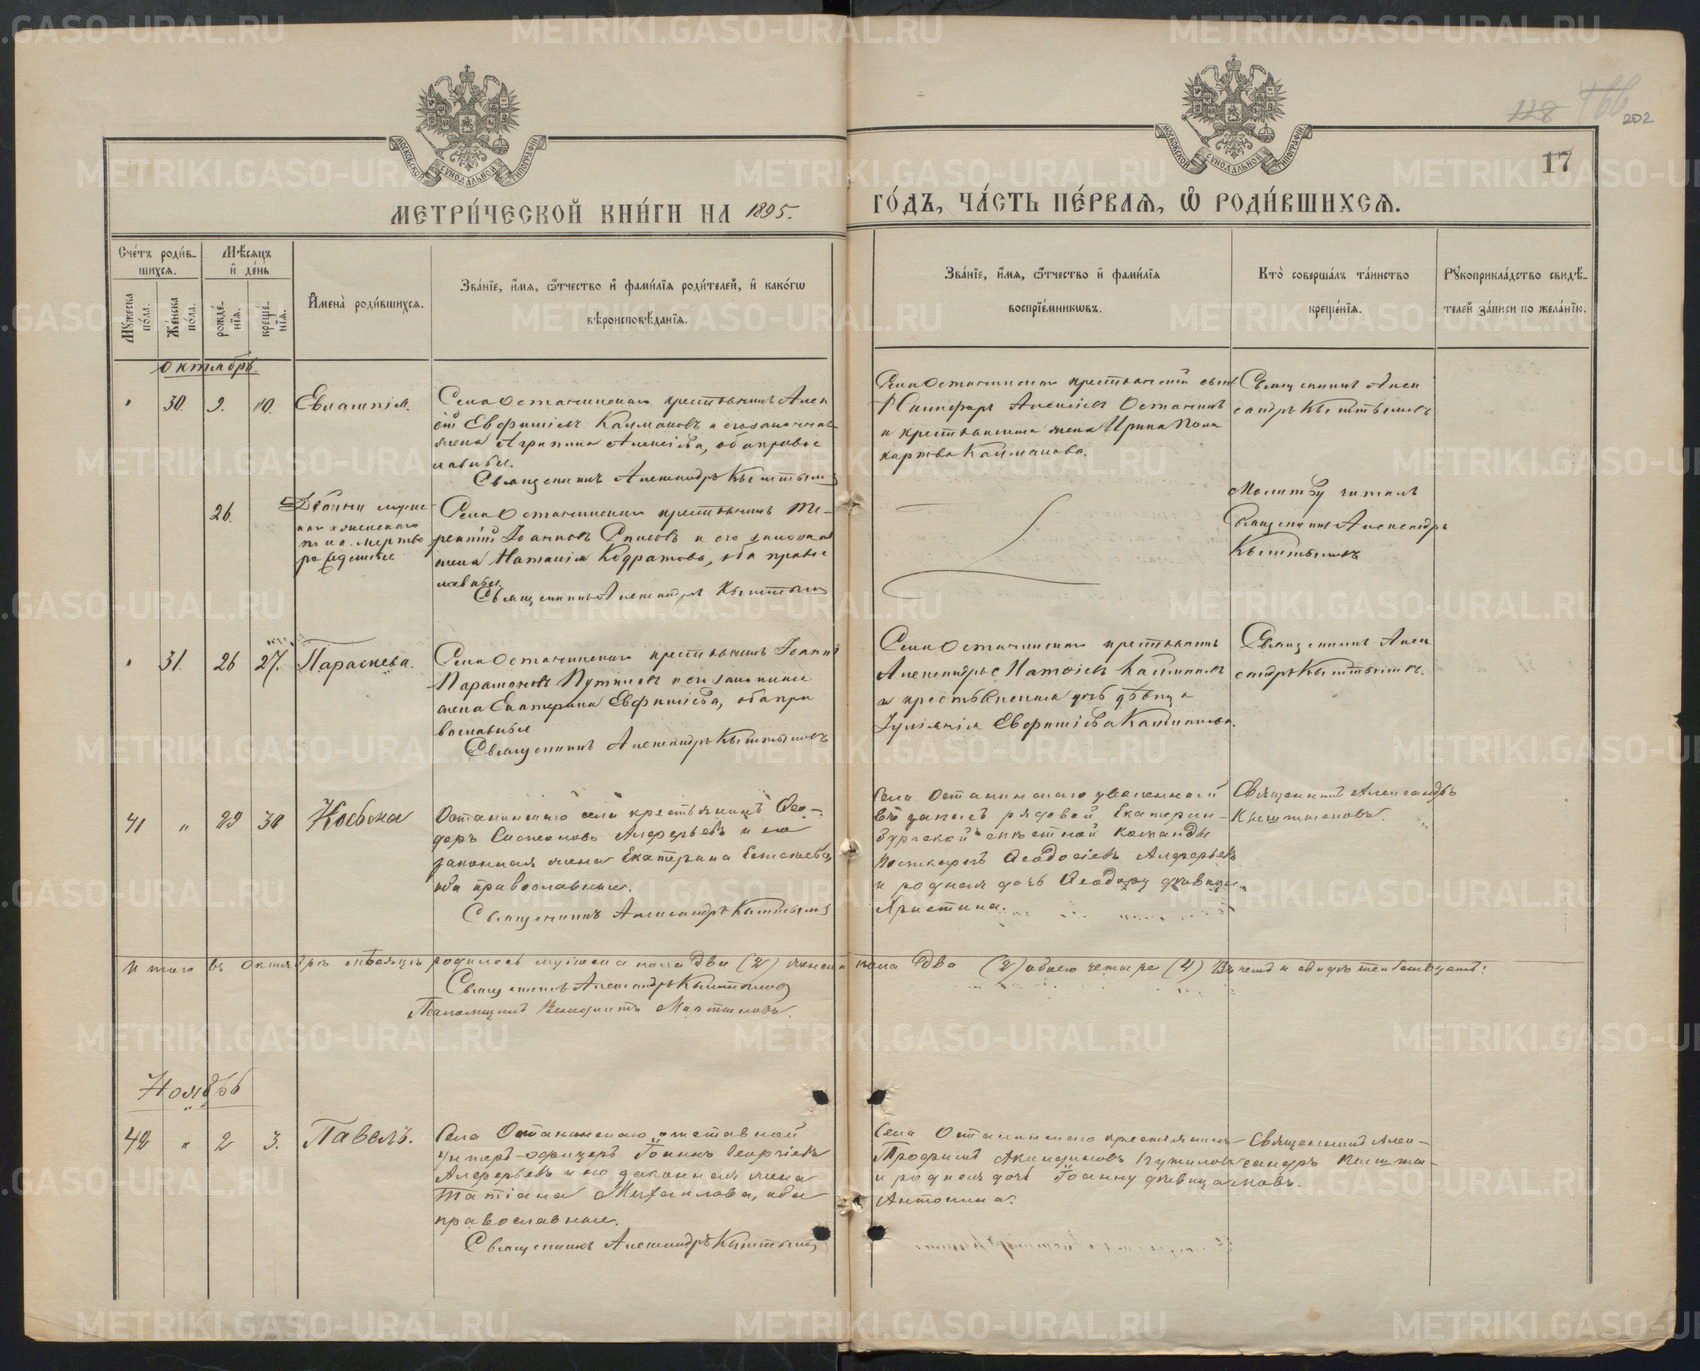 118
202
17
МЕТРИ́ЧЕСКОЙ КНИ́ГИ НА 1895.
ГО́ДЪ, ЧА́СТЬ ПЕ́РВАЯ, Ѡ РОДИ́ВШИХСЯ.
Сче́тъ роди́в-
шихся.
Мꙋ́жеска по́ла.
Же́нска по́ла.
Мѣ́сяцъ и де́нь
рожде́нїя.
креще́нїя.
И҆мена̀ роди́вшихся.
Зва́нїе, и҆́мя, ѻ҆́тчество и҆ фами́лїя роди́телей, и҆ како́гѡ
вѣроисповѣ́данїя.
Зва́нїе, и҆́мя, ѻ҆́тчество и҆ фами́лїя
воспрїе́мникѡвъ.
Кто̀ соверша́лъ та́инство
креще́нїя.
Рꙋкоприкла́дство свидѣ́-
телей за́писи по жела́нїю.
Октябрь.
" 30. 9. 10. Евлампія.
Села Останинскаго крестьянинъ Алек
сѣй Евфиміевъ Каймановъ и его законная
жена Агрипина Алексіева, оба правос
лавные.
Священникъ Александръ Кыштымовъ
Села Останинскаго крестьянскій сынъ
Никифоръ Алексіевъ Останинъ
и крестьянина жена Ирина Поли
карпова Кайманова.
Священникъ Алек
сандръ Кыштымовъ
26.
Двойни муже
ска и женскаго
пола. мертво
рожденные
Села Останинскаго крестьянинъ Те-
рентій Іоанновъ и его законная
жена Наталія Кодратова, оба правос
лавные.
Священникъ Александръ Кыштымовъ
Молитву читалъ
Священникъ Александръ
Кыштымовъ
" 31. 26 27. Параскева.
Села Останинскаго крестьянинъ Іоаннъ
Парамоновъ Путиловъ и его законная
жена Екатерина Евфиміева, оба пра
вославные
Священникъ Александръ Кыштымовъ
Села Останинскаго крестьянинъ
Александръ Каймановъ
и крестьянская дочь дѣвица
Іуліанія Евфиміева Кайманова.
Священникъ Алек
сандръ Кыштымовъ.
41 " 29 30
Останинскаго села крестьянинъ Ѳео-
доръ Алферьевъ и его
законная жена Екатерина
оба православные.
Священникъ Александръ Кыштымовъ
Села Останинскаго уволенный
въ запасъ рядовой Екатерин-
бургской мѣстной команды
Никифоръ Ѳеодосіевъ Алферьевъ
и родная дочь Ѳеодору дѣвица
Христина.
Священникъ Александръ
Кыштымовъ.
Итого въ Октябрѣ мѣсяцѣ родилось мужска пола два (2) женска пола два (2) обоего четыре (4) Въ чемъ и свидѣтельствуетъ:
Священникъ Александръ Кыштымовъ
Псаломщикъ Венедиктъ
Ноябрь
42 " 2 3. Павелъ.
Села Останинскаго отставной
унтеръ-офицеръ Іоаннъ Георгіевъ
Алферьевъ и его законная жена
Татіана Михаилова, оба
православные.
Священникъ Александръ Кыштымовъ
Села Останинскаго крестьянинъ
Трофимъ Путиловъ
и родная дочь Іоанну дѣвица
Антонина.
Священникъ Алек-
сандръ Кышты-
мовъ.
METRIKI.GASO-URAL.RU